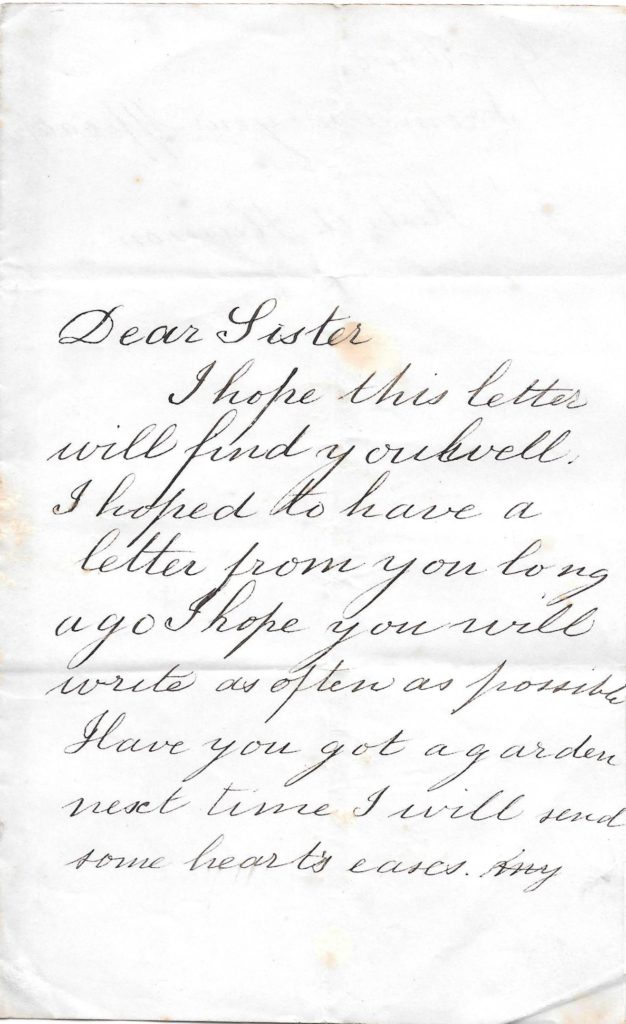 Dear Sister
I hope this letter
will find you well.
I hoped to have a
letter from you long
ago I hope you will
write as often as possible
Have you got a garden
next time I will send
some heart's eases. Any